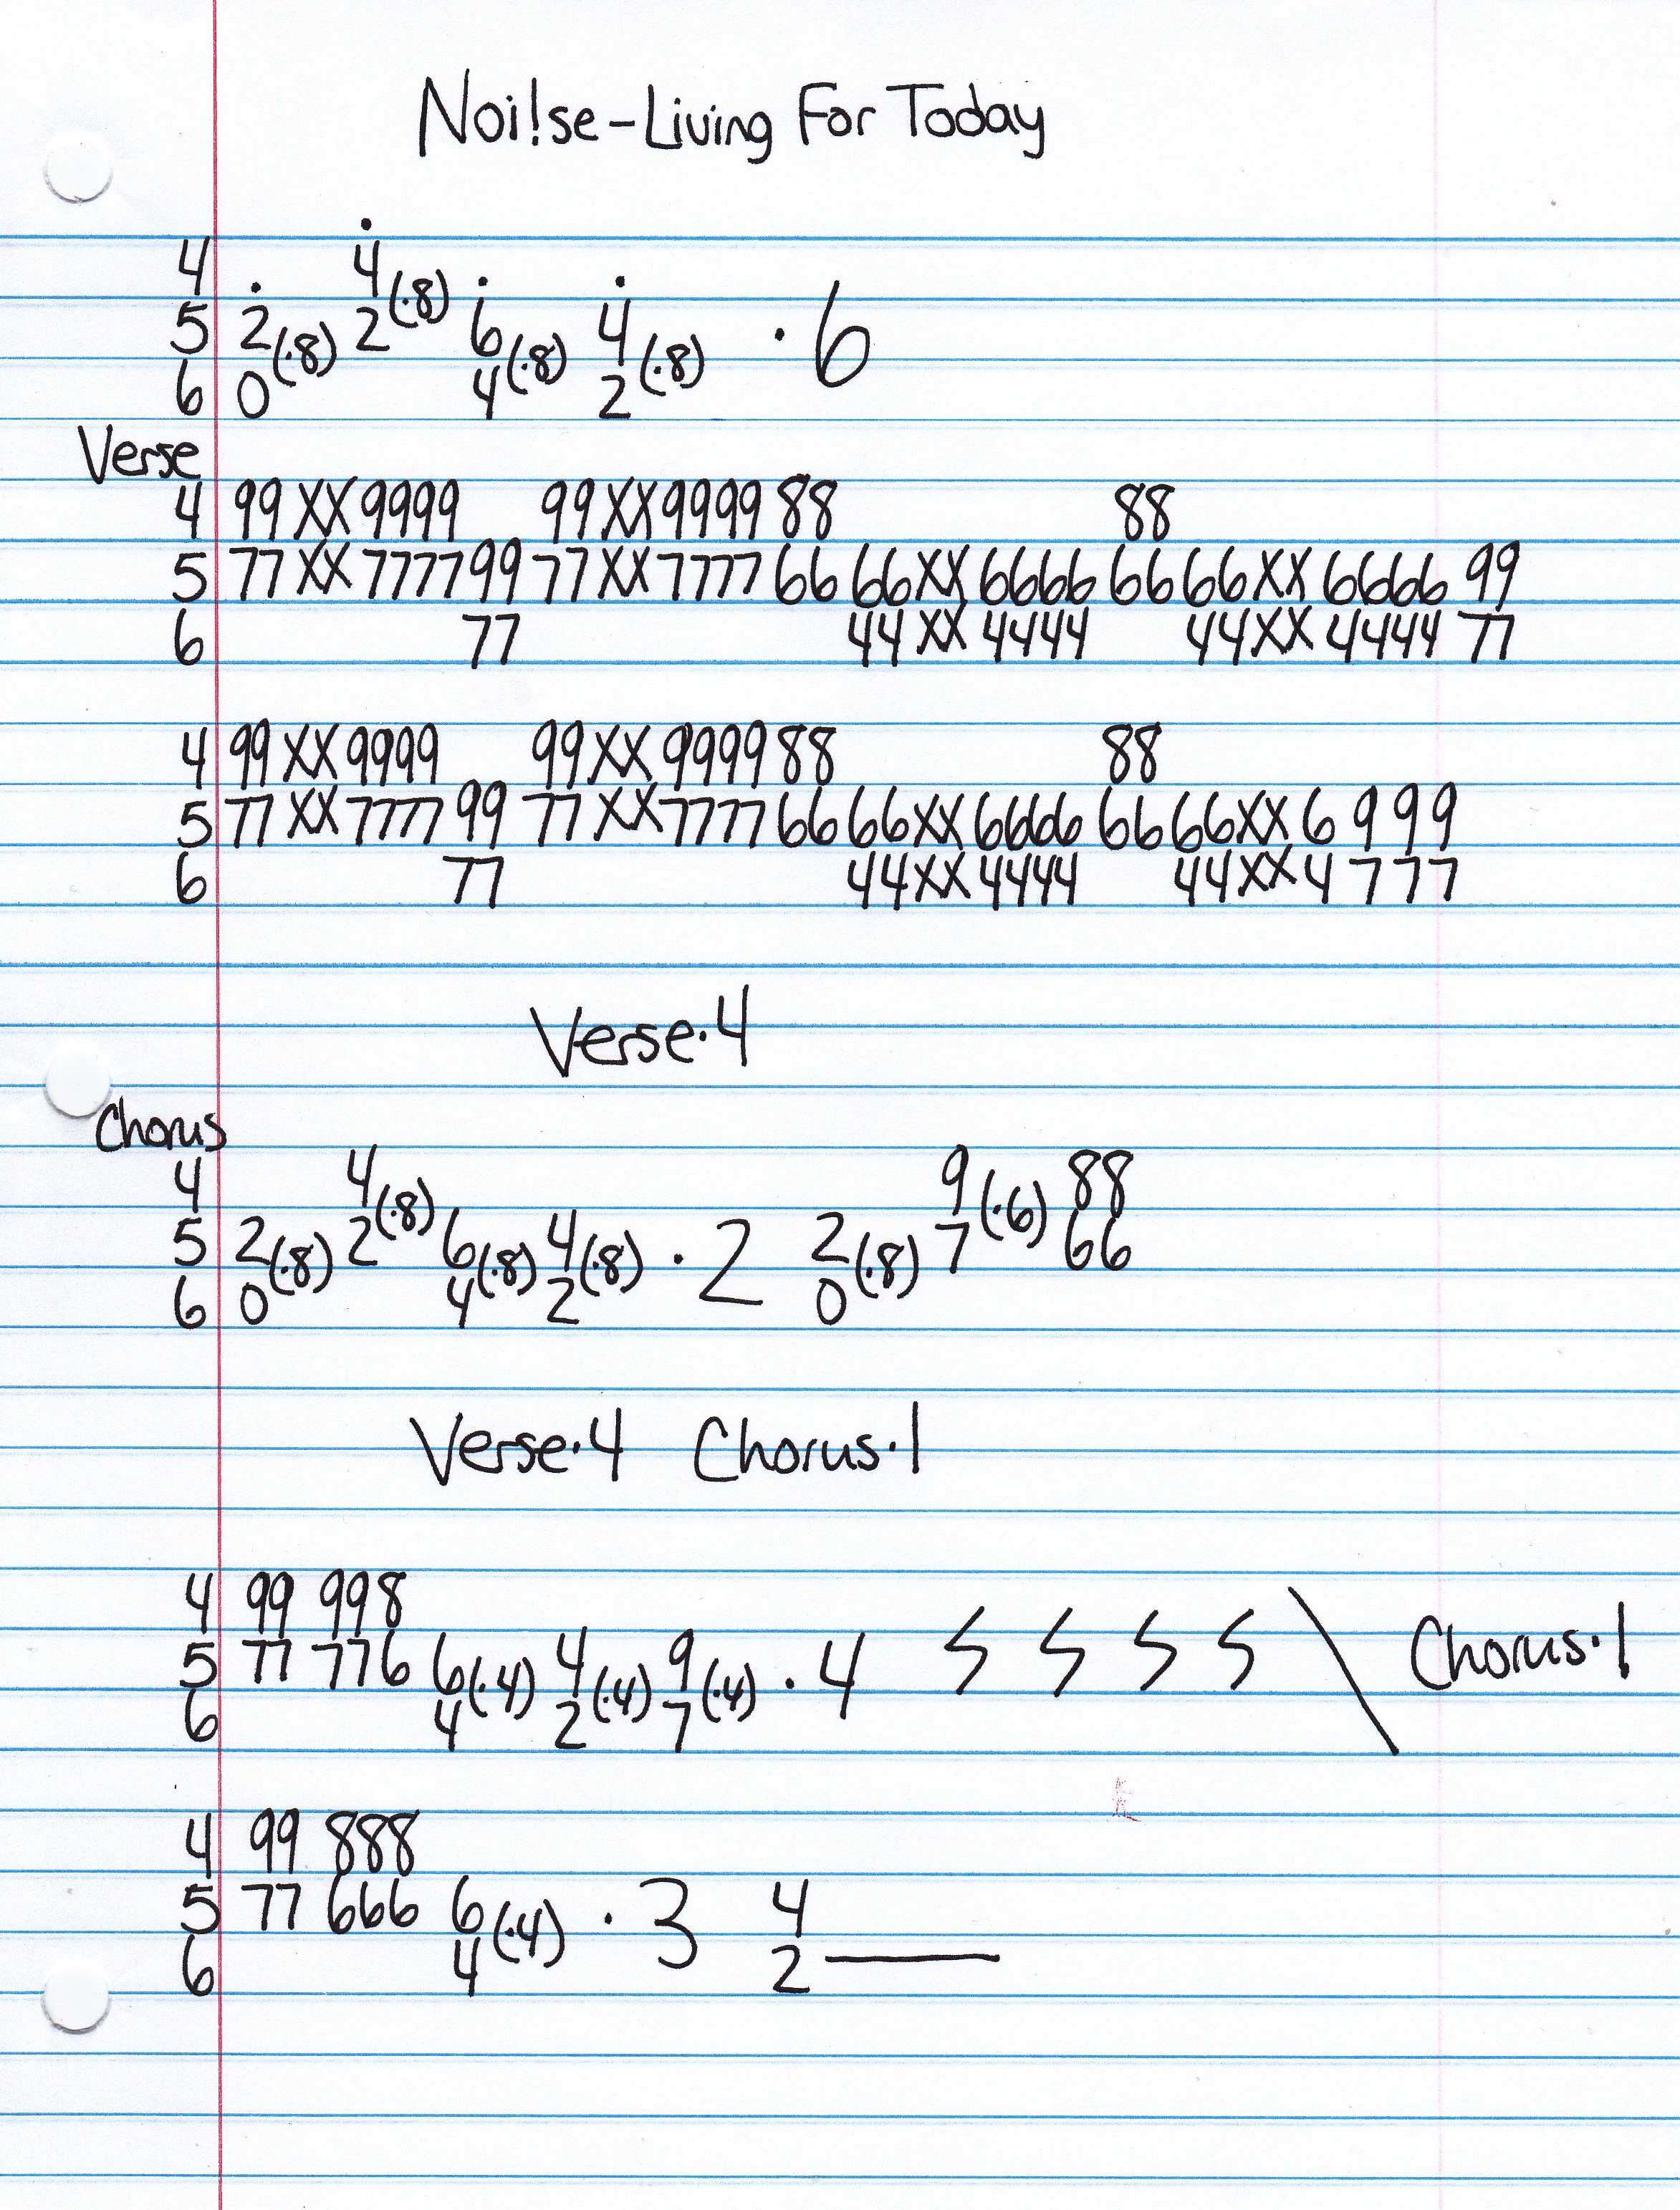 Noi!se - Living For Today
4 4(·8)
5 2(·8) 2 6(·8) 4(·8) ·6
6 0 4 2
Verse
4 99XX9999 99XX999988 88
5 77XX777799 77XX777766 66XX6666 66 66XX6666 99
6 77 44XX4444 44XX4444 77
4 99XX9999 99XX999988 88
5 77XX7777 99 77XX777766 66XX6666 66 66XX6 9 9 9
6 77 44XX4444 44XX4 7 7 7
Verse·4
Chorus
4 4(·8) 9(·6) 88
5 2(·8) 2 6(·8) 4(·8) ·2 2(·8) 7 66
6 0 4 2 0
Verse·4 Chorus·1
4 99 998
5 77 776 6(·4) 4(·4) 9(·4) ·4 \ Chorus·1
6 4 2 7
4 99 888
5 77 666 6(·4) ·3 4
6 4 2